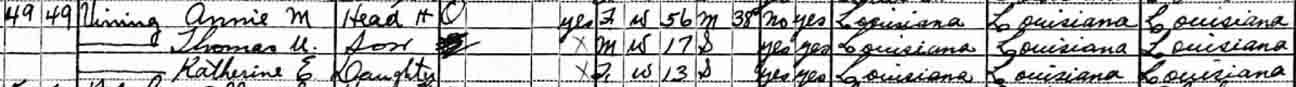 49 49 Vining Annie M Head H O yes F W 56 M 38 No yes Louisiana Louisiana Louisiana
Thomas U. Son X M W 17 S yes yes Louisiana Louisiana Louisiana
Katherine E Daughter X F W 13 S yes yes Louisiana Louisiana Louisiana